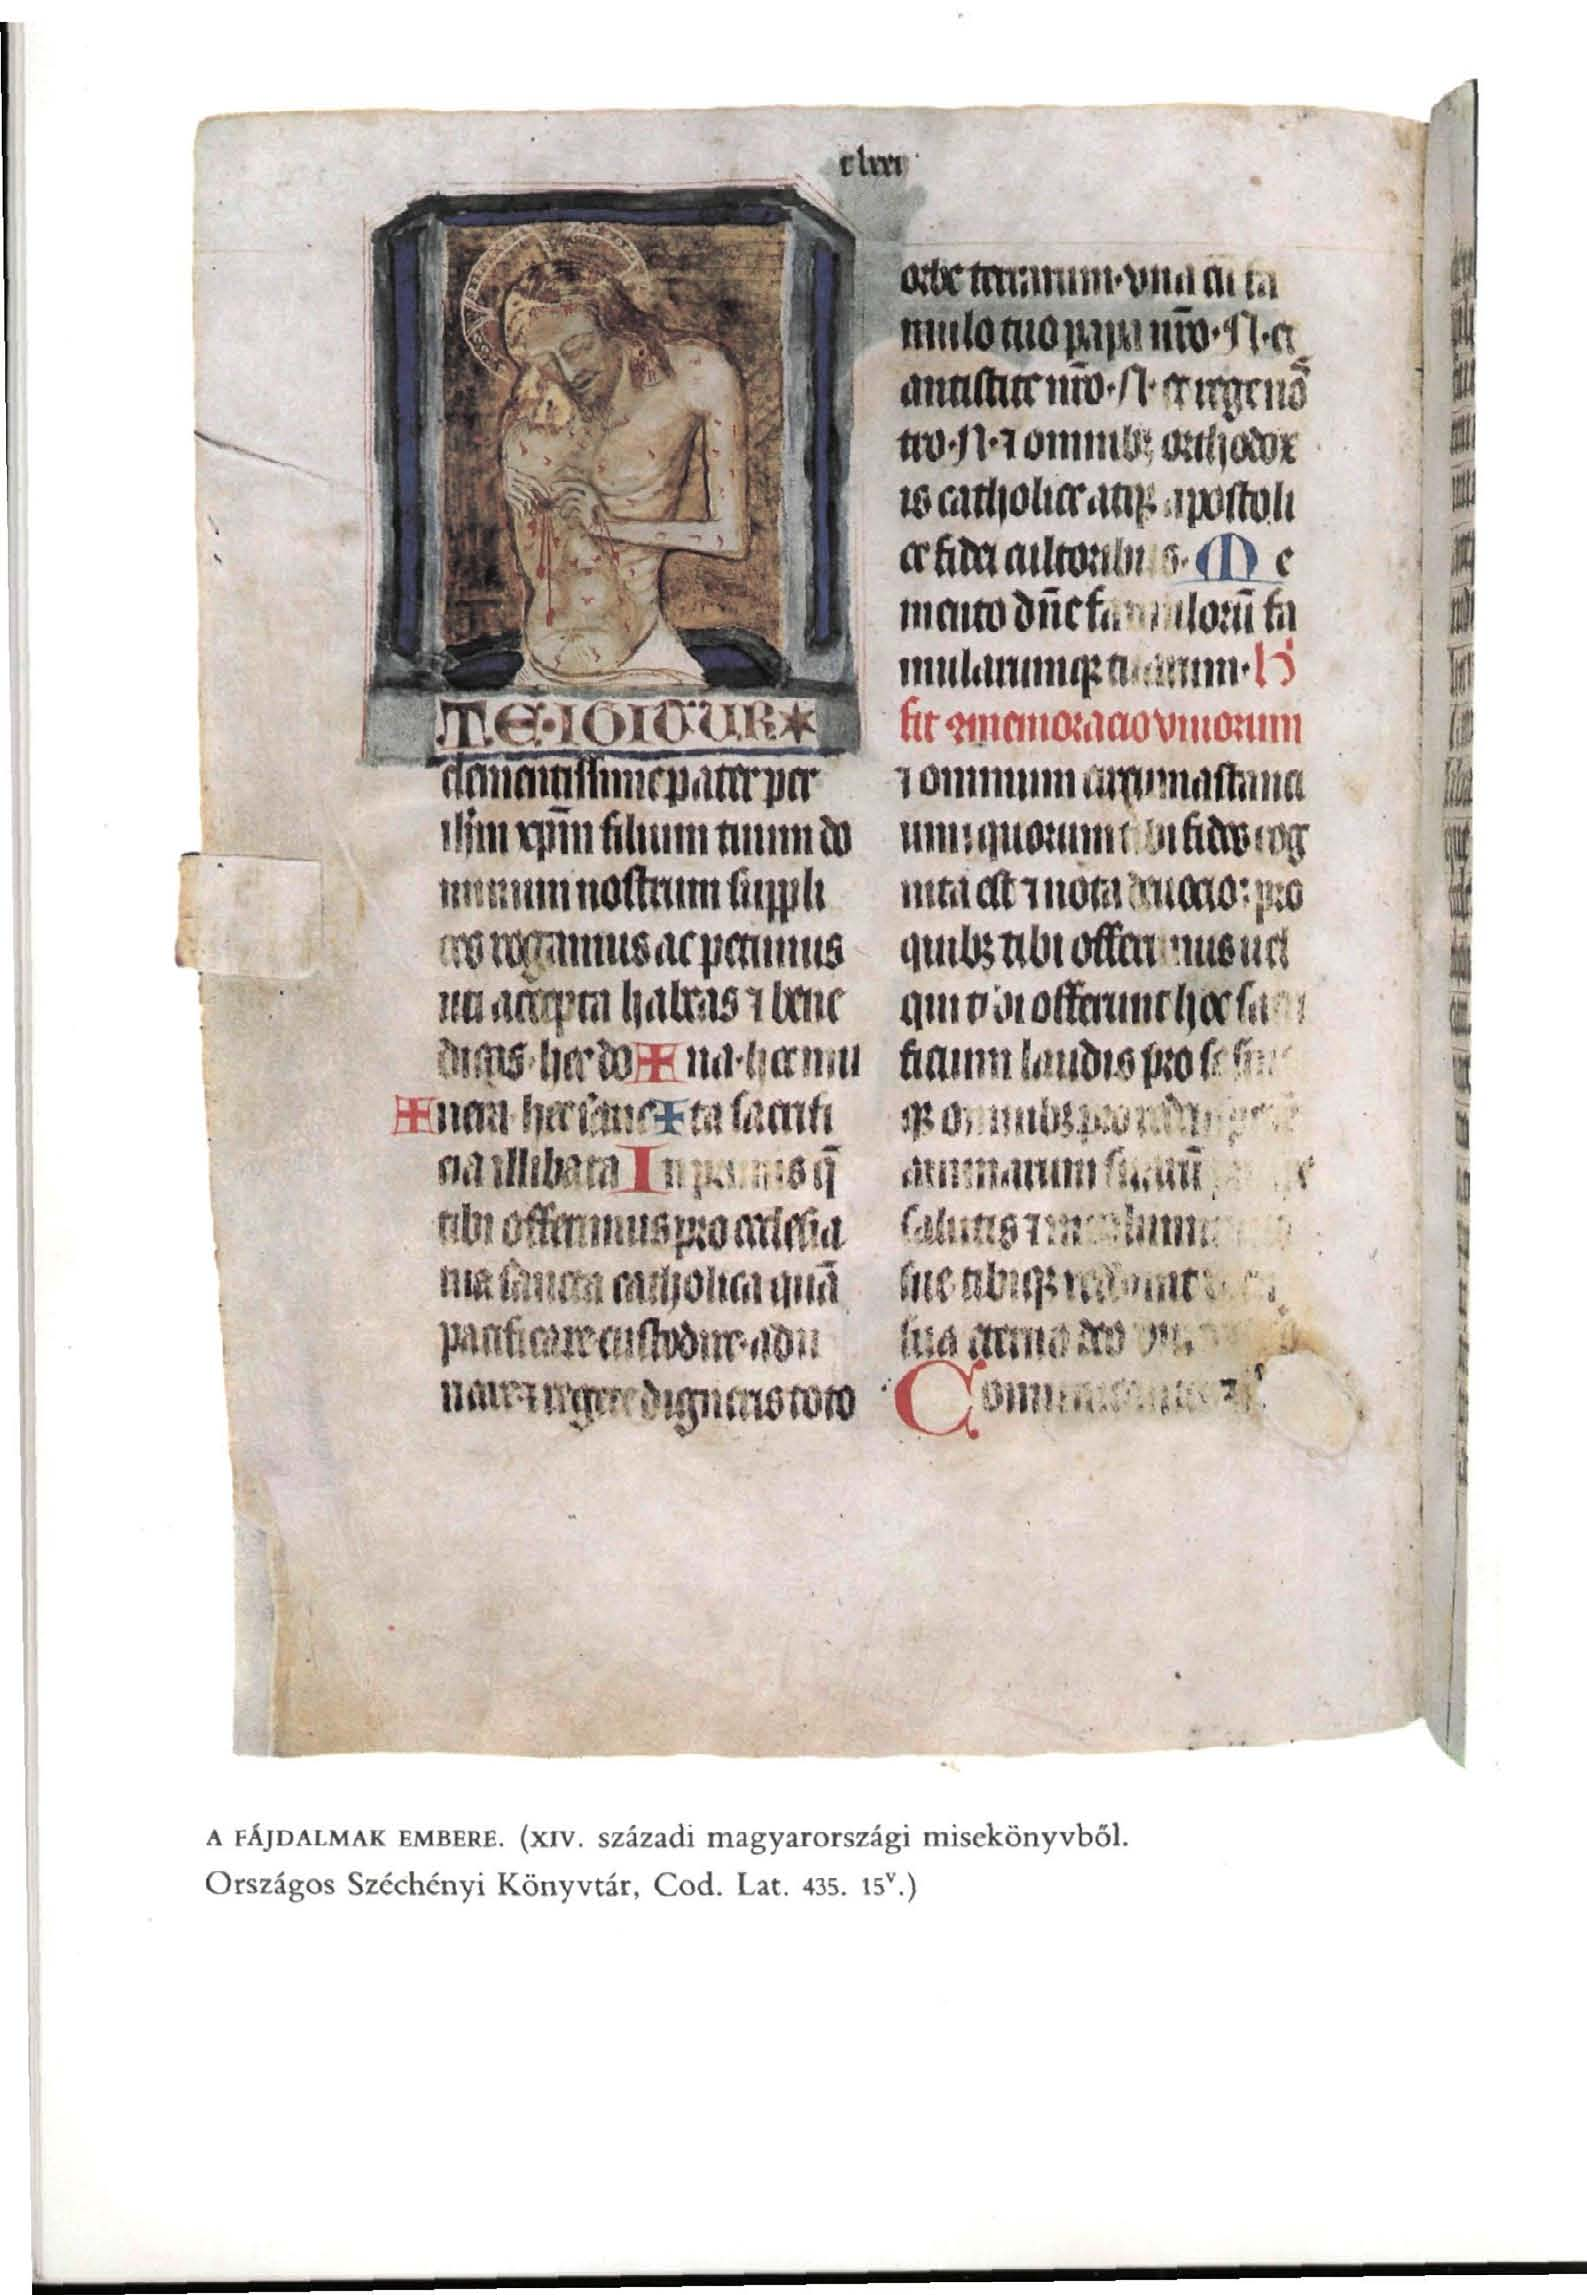 clxxi
TE·IGITUR
clementissime pater per
ihm xpm filium tuum do
minum nostrum suppli
ces rogamus ac petimus
uti accepta habeas ⁊ bene
dicas· hec do✠na· hec mu
✠nera· hec sanc✠ta sacrifi
cia illibata In primis q̄
tibi offerimus pro ecclesia
tua sancta catholica quā
pacificare custodire· adu
nare· ⁊ regere digneris toto
orbe terrarum· vna cū fa
mulo tuo papa nr̄o· N· et
antistite nr̄o· N· et rege nō
tro· N· ⁊ omnibꝫ orthodox
is catholice atqꝫ apostoli
ce fidei cultoribus· Me
mento dn̄e famulorū fa
mularumqꝫ tuarum·
fit ꝯmemoracio viuorum
⁊ omnium circumastanci
um: quorum tibi fides cog
nita est ⁊ nota deuocio: pro
quibꝫ tibi offerimus uel
qui tibi offerunt hoc sacri
ficium laudis pro se suis
qꝫ omnibꝫ pro
animarum suarū
salutis ⁊
sue tibiqꝫ reddunt
sua eterno deo
A FÁJDALMAK EMBERE. (XIV. századi magyarországi misekönyvből.
Országos Széchényi Könyvtár, Cod. Lat. 435. 15ᵛ.)